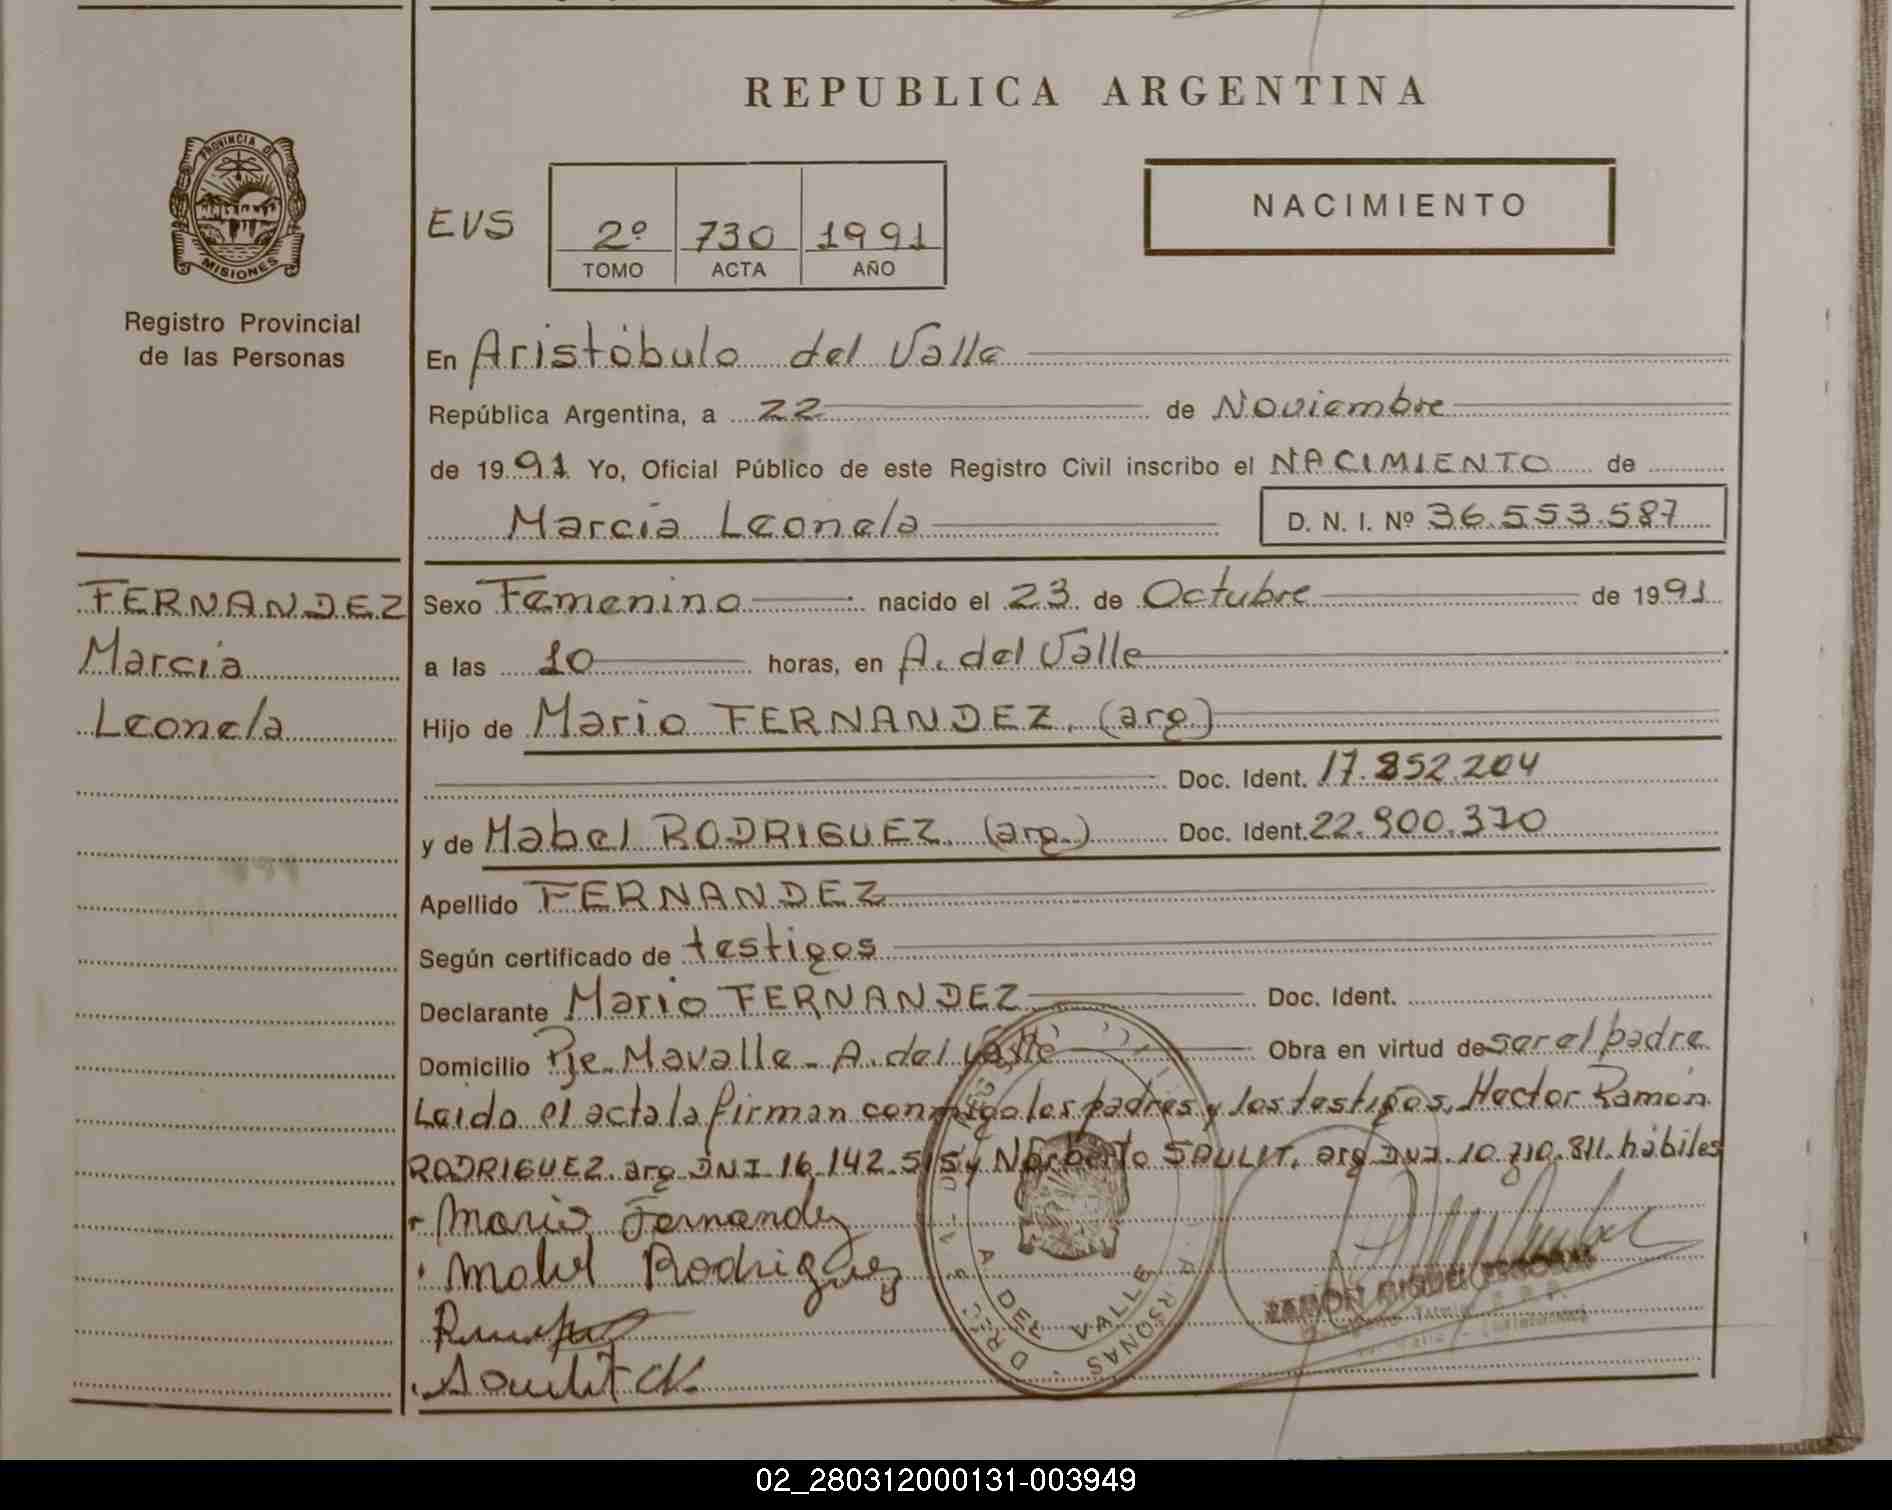 REPUBLICA ARGENTINA
PROVINCIA DE
MISIONES
Registro Provincial
de las Personas
EVS
2º 730 1991
TOMO ACTA AÑO
NACIMIENTO
En Aristóbulo del Valle
República Argentina, a 22 de Noviembre
de 1991 Yo, Oficial Público de este Registro Civil inscribo el NACIMIENTO de
Marcia Leonela D. N. I. Nº 36.553.587
FERNANDEZ
Marcia
Leonela
Sexo Femenino nacido el 23 de Octubre de 1991
a las 10 horas, en A. del Valle
Hijo de Mario FERNANDEZ. (arg.)
Doc. Ident. 17.852.204
y de Mabel RODRIGUEZ. (arg.) Doc. Ident. 22.900.370
Apellido FERNANDEZ
Según certificado de testigos
Declarante Mario FERNANDEZ Doc. Ident.
Domicilio Pje. Mavalle - A. del Valle Obra en virtud de ser el padre
Leida el acta la firman conmigo los padres y los testigos, Hector Ramón
RODRIGUEZ. arg DNI 16.142.515 y Norberto SAULIT. arg DNI. 10.710.811. hábiles
Mario Fernandez
Mabel Rodriguez
A DEL VALLE
RAMÓN MIGUEL ESCOBAR
02_280312000131-003949